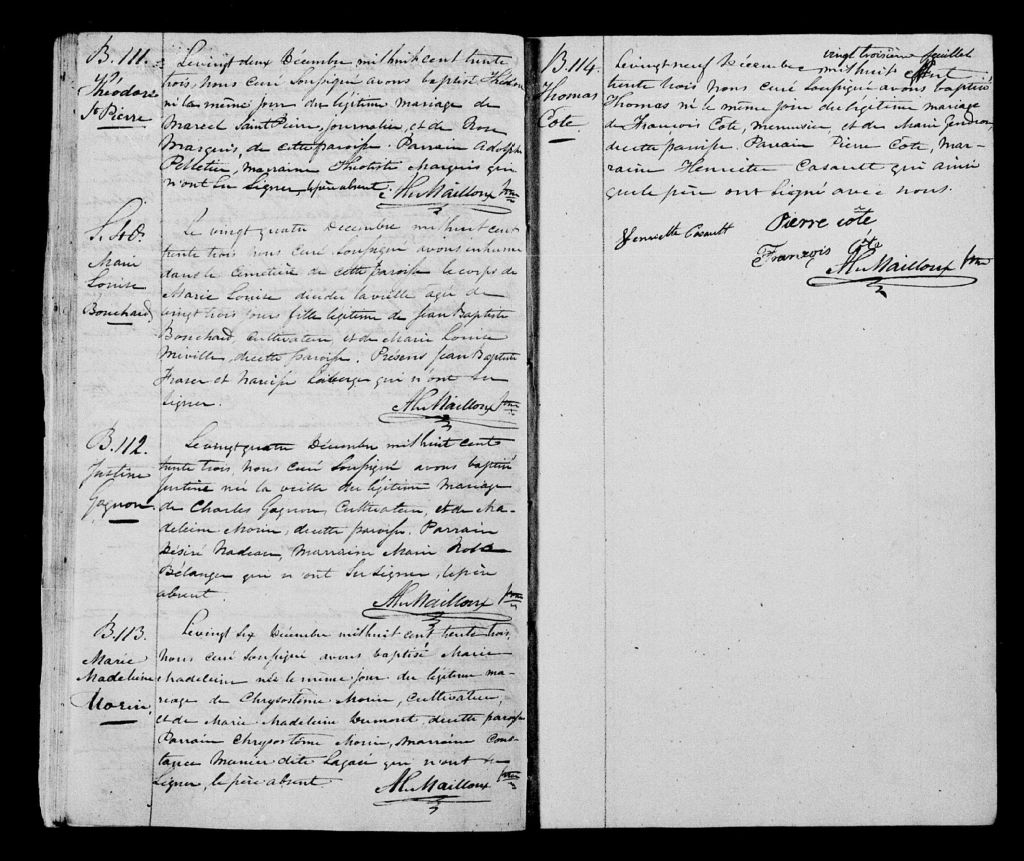 B. 111.
Théodore
St Pierre
Le vingt deux Décembre mil huit cent trente
trois, nous curé soussigné avons baptisé Théodore
né la même jour du légitime mariage de
Marcel Saint Pierre, journalier, et de Rose
Marquis, de cette paroisse. Parrain Adolphe
Pelletier, maraine Théotiste Marquis qui
n'ont su signer, le père absent.
Alx Mailloux ptre
S.
Marie
Louise
Bouchard
Le vingt quatre Décembre mil huit cent
trente trois nous curé soussigné avons inhumé
dans le cemetière de cette paroisse le corps de
Marie Louise décédée la veille agée de
vingt trois jours fille légitime de Jean Baptiste
Bouchard, cultivateur, et de Marie Louise
Miville, de cette paroisse. Présens Jean Baptiste
Fraser et Narcisse qui n'ont su
signer.
Alx Mailloux ptre
B. 112.
Justine
Gagnon
Le vingt quatre Décembre mil huit cent
trente trois, nous curé soussigné avons baptisé
Justine née la veille du légitime mariage
de Charles Gagnon, cultivateur, et de Ma-
deleine Morin, de cette paroisse. Parrain
Désiré Nadeau, marraine Marie
Bélanger qui n'ont su signer, le père
absent.
Alx Mailloux ptre
B. 113.
Marie
Madeleine
Morin.
Le vingt six Décembre mil huit cent trente trois,
nous curé soussigné avons baptisé Marie
Madeleine née le même jour du légitime ma-
riage de Chrysostôme Morin, cultivateur,
et de Marie Madeleine Dumont, de cette paroisse
Parrain Chrysostôme Morin, marraine Cons-
tance dite Lagacé qui n'ont su
signer, le père absent.
Alx Mailloux ptre
vingt troisième feuillet
B. 114.
Thomas
Cote.
Le vingt neuf Décembre mil huit cent
trente trois nous curé soussigné avons baptisé
Thomas né le même jour du légitime mariage
de François Cote, menuisier, et de Marie Gendron,
de cette paroisse. Parrain Pierre Cote, mar-
raine Henriette Casault qui ainsi
que le père ont signé avec nous.
Henriette Casault
Pierre cote
François Côté
Alx Mailloux ptre